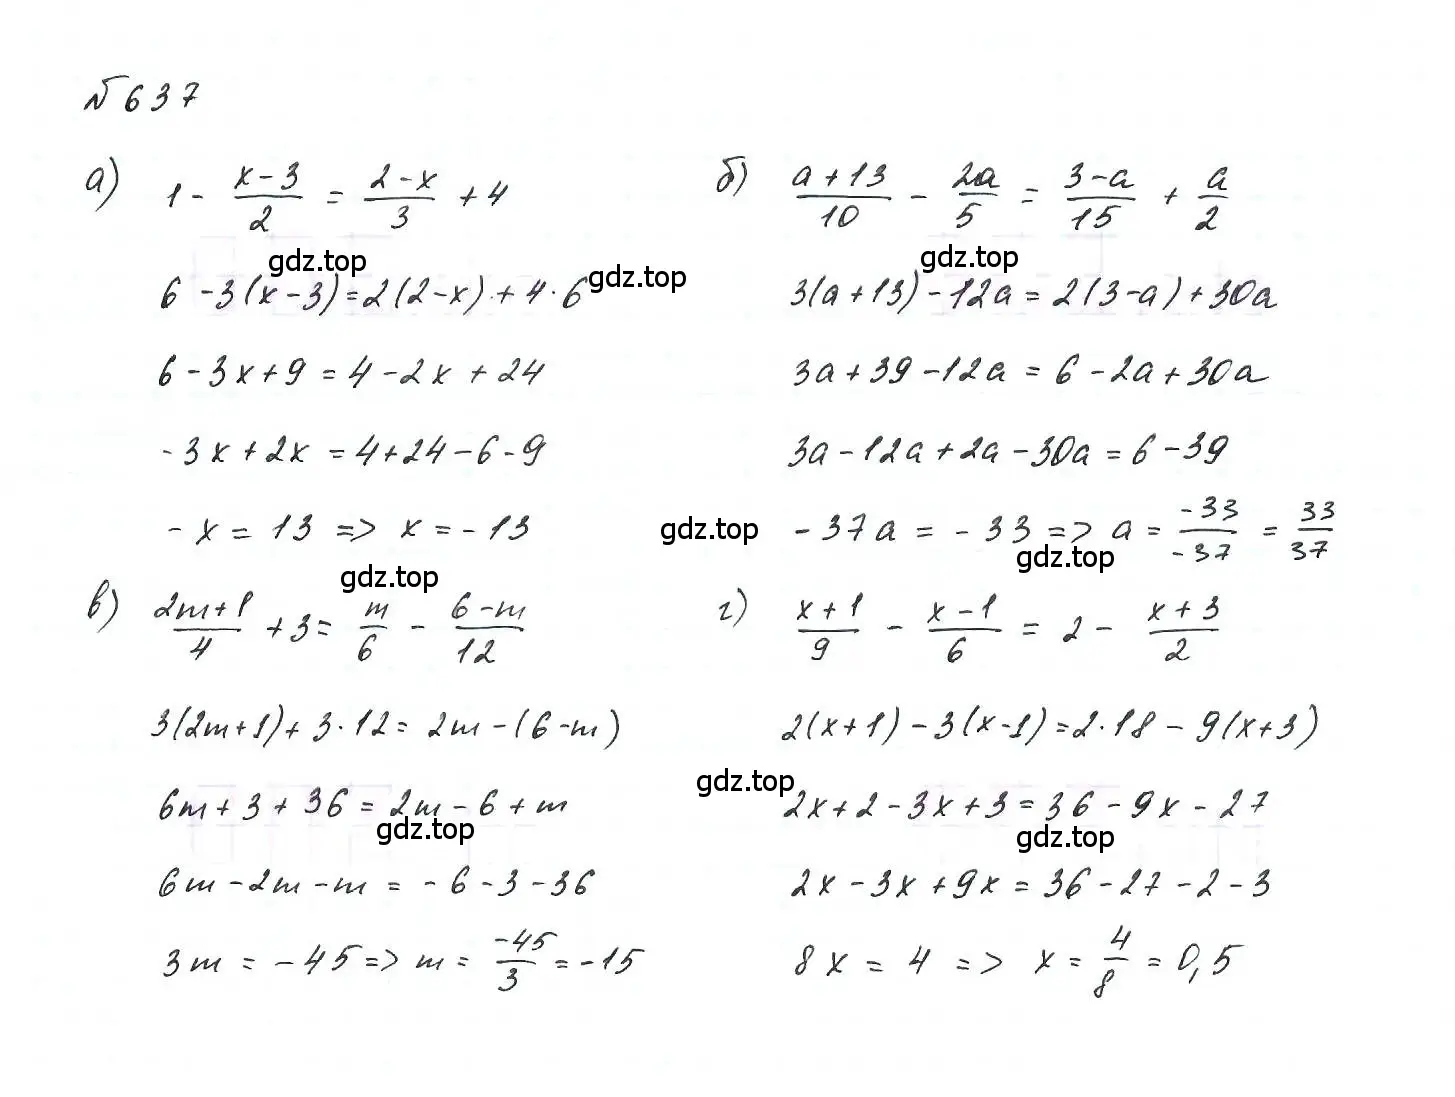 № 637
а) 1 - (x-3)/2 = (2-x)/3 + 4
gdz.top
6 - 3(x-3) = 2(2-x) + 4·6
gdz.top
6 - 3x + 9 = 4 - 2x + 24
-3x + 2x = 4 + 24 - 6 - 9
-x = 13 => x = -13
gdz.top
б) (a+13)/10 - 2a/5 = (3-a)/15 + a/2
gdz.top
3(a+13) - 12a = 2(3-a) + 30a
3a + 39 - 12a = 6 - 2a + 30a
3a - 12a + 2a - 30a = 6 - 39
gdz.top
-37a = -33 => a = -33/-37 = 33/37
gdz.top
в) (2m+1)/4 + 3 = m/6 - (6-m)/12
3(2m+1) + 3·12 = 2m - (6-m)
6m + 3 + 36 = 2m - 6 + m
gdz.top
6m - 2m - m = -6 - 3 - 36
3m = -45 => m = -45/3 = -15
г) (x+1)/9 - (x-1)/6 = 2 - (x+3)/2
2(x+1) - 3(x-1) = 2·18 - 9(x+3)
gdz.top
2x + 2 - 3x + 3 = 36 - 9x - 27
gdz.top
2x - 3x + 9x = 36 - 27 - 2 - 3
8x = 4 => x = 4/8 = 0,5